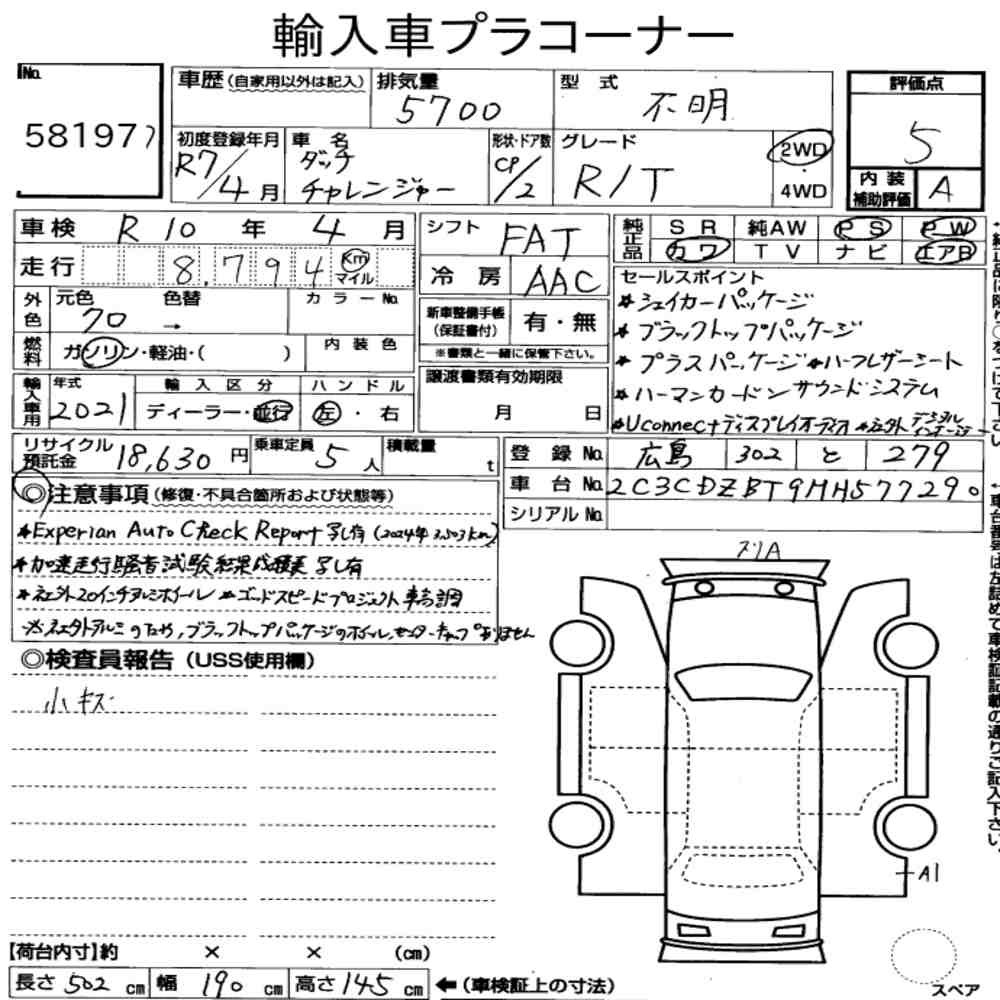 輸入車プラコーナー
No.
58197
車歴(自家用以外は記入)
排気量
5700
型式
不明
評価点
5
初度登録年月
R7/4月
車名
ダッヂ
チャレンジャー
形状・ドア数
CP/2
グレード
R/T
2WD
4WD
内装
補助評価
A
車検 R10年4月
走行 8,794 Km
マイル
シフト
FAT
冷房 AAC
純正品
SR 純AW PS PW
カワ TV ナビ エアB
外色
元色 色替
クロ →
カラーNo.
燃料
ガソリン・軽油・( )
内装色
新車整備手帳
(保証書付)
有・無
※書類と一緒に保管下さい。
セールスポイント
*シェイカーパッケージ
*ブラックトップパッケージ
*プラスパッケージ *ハーフレザーシート
*ハーマンカードンサウンドシステム
*Uconnectディスプレイオーディオ
輸入車用
年式
2021
輸入区分
ディーラー・並行
ハンドル
左・右
譲渡書類有効期限
月 日
リサイクル
預託金
18,630円
乗車定員
5人
積載量
t
登録No. 広島 302 と 279
車台No. 2C3CDZBT9MH577290
シリアルNo.
◎注意事項(修復・不具合箇所および状態等)
*Experian Auto Check Report 写し有(2024年 3,503km)
*加速走行騒音試験結果成績表写し有
*社外20インチアルミホイール *ゴッドスピードプロジェクト車高調
※社外アルミのため、ブラックトップパッケージのホイル,センターキャップありません
◎検査員報告(USS使用欄)
小キズ
スリA
A1
スペア
【荷台内寸】約 × × (cm)
長さ502cm 幅190cm 高さ145cm ←(車検証上の寸法)
車台番号は左詰めで車検証記載の通りご記入下さい。